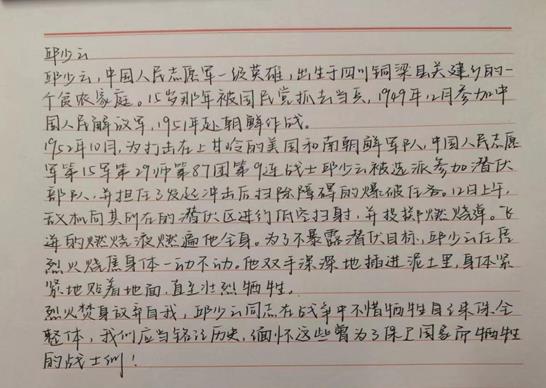 邱少云
邱少云，中国人民志愿军一级英雄，出生于四川铜梁县关建乡的一
个贫农家庭。15岁那年被国民党抓去当兵，1949年12月参加中
国人民解放军，1951年赴朝鲜作战。
1952年10月，为打击在上甘岭的美国和南朝鲜军队，中国人民志愿
军第15军第29师第87团第9连战士邱少云被选派参加潜伏
部队，并担任了发起冲击后扫除障碍的爆破任务。12日上午，
敌机向其所在的潜伏区进行低空扫射，并投掷燃烧弹。飞
迸的燃烧液燃遍他全身。为了不暴露潜伏目标，邱少云任凭
烈火烧焦身体一动不动。他双手深深地插进泥土里，身体紧
紧地贴着地面，直至壮烈牺牲。
烈火焚身放弃自我，邱少云同志在战争中不惜牺牲自己来保全
整体，我们应当铭记历史，缅怀这些曾为了保卫国家而牺牲
的战士们！